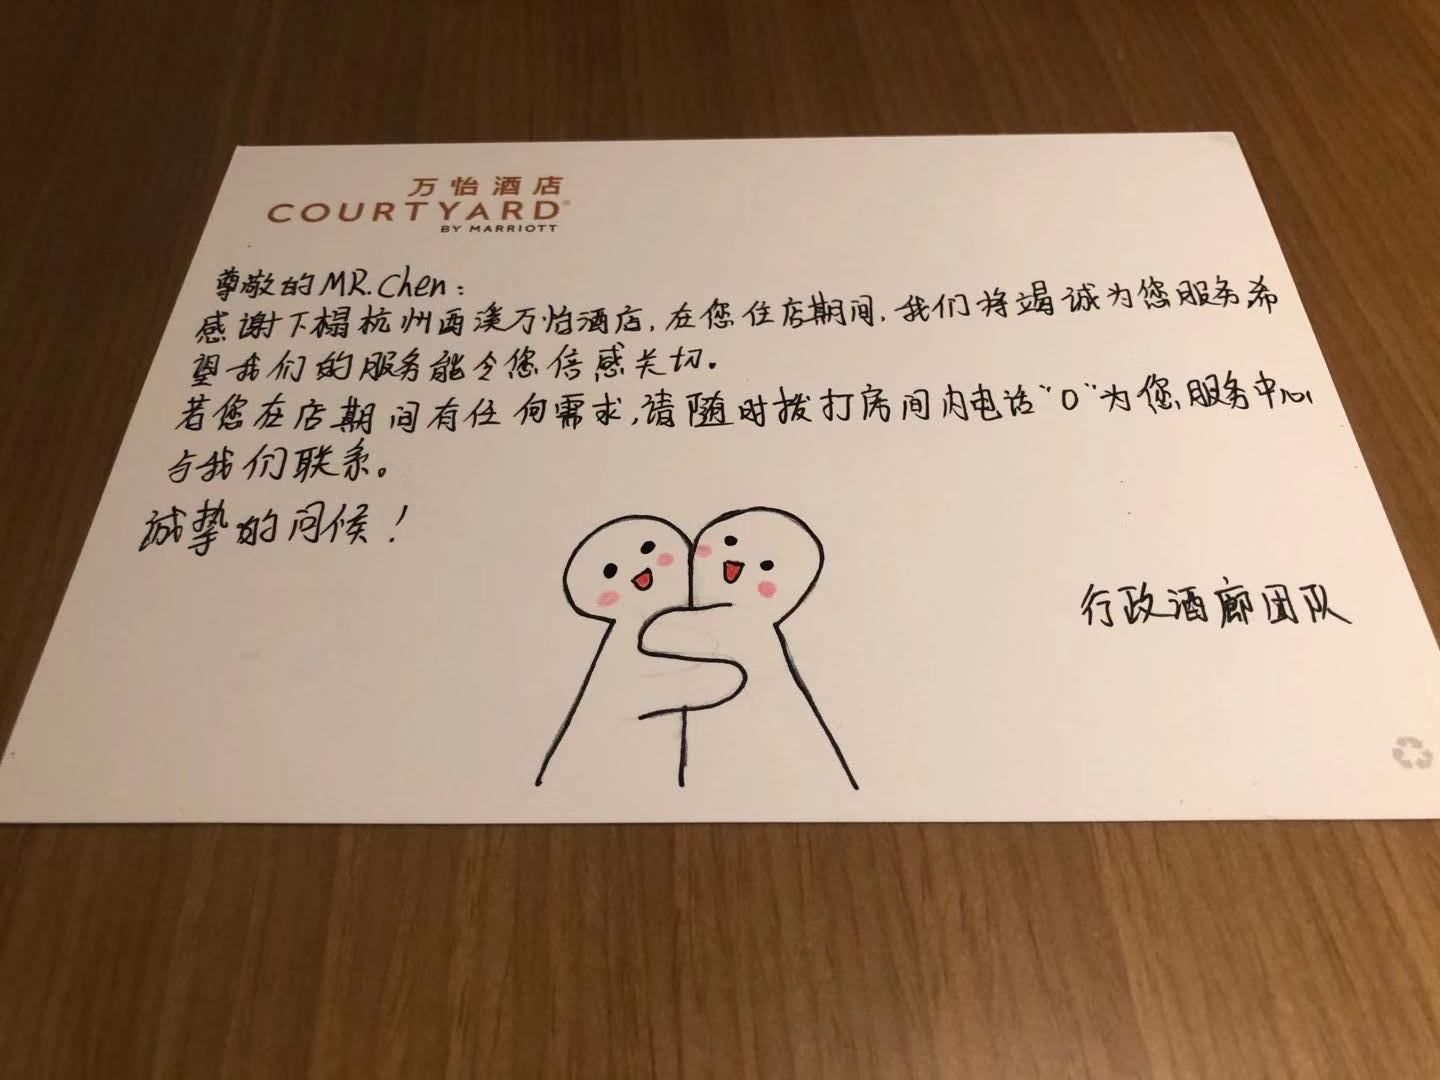 万怡酒店
COURTYARD®
BY MARRIOTT
尊敬的MR.Chen：
感谢下榻杭州西溪万怡酒店，在您住店期间，我们将竭诚为您服务希
望我们的服务能令您倍感关切。
若您在店期间有任何需求，请随时拨打房间内电话“0”为您服务中心
与我们联系。
诚挚的问候！
行政酒廊团队